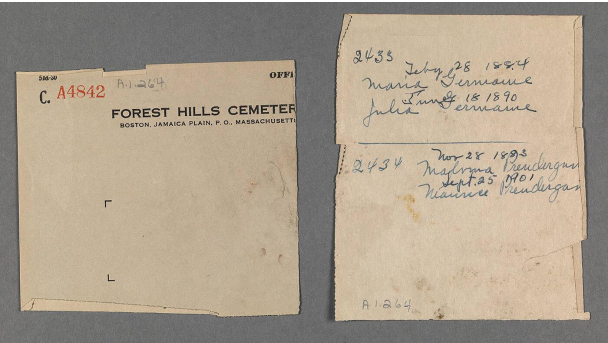 5M-20
A-1-264
OFFI
C. A4842
FOREST HILLS CEMETER
BOSTON, JAMAICA PLAIN, P. O., MASSACHUSETT
2433
Feby 28 1884
Maria Germaine
June 18 1890
Julia Germaine
Nov 28 1893
2434 Malvina Prendergas
Sept. 25 1901
Maurice Prendergas
A-1-264